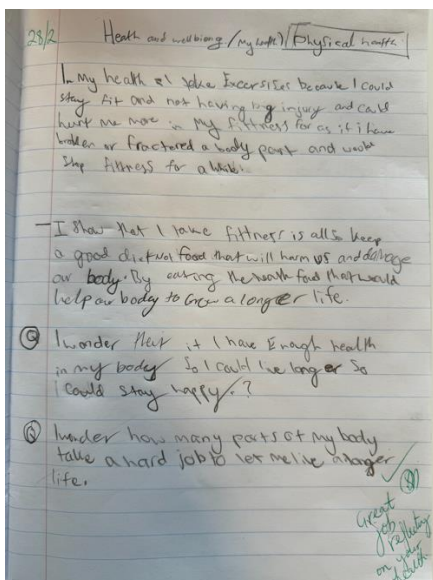 28/2 Heath and wellbiong / My health / Physical health
In my health I take Excersises because I could
stay fit and not having big injury and could
hurt me more in my fittness for as if i have
broken or fractured a body part and
stop fittness for a while.
- I show that I take fittness is allso keep
a good diet not food that will harm us and damage
our body. By eating the health food that would
help our boday to Grow a longer life.
Q I wonder that if I have Enough health
in my body so I could live longer So
I could stay happy.?
Q I wonder how many parts of my body
take a hard job to let me live a longer
life.
Great
job
reflecting
on your
health